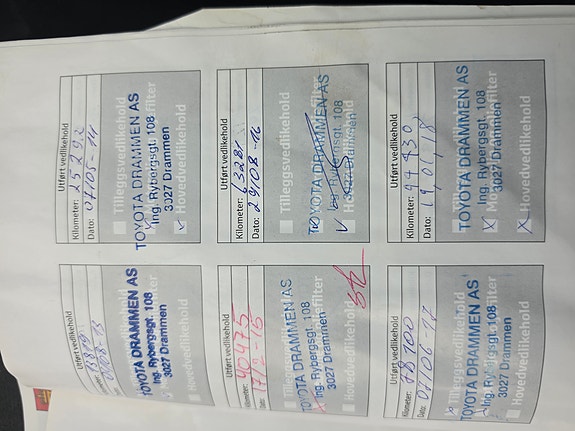 Utført vedlikehold
Kilometer:
Dato:
TOYOTA DRAMMEN AS
Ing. Rybergsgt. 108
3027 Drammen
Hovedvedlikehold
Utført vedlikehold
Kilometer: 25292
Dato: 07/05-14
Tilleggsvedlikehold
TOYOTA DRAMMEN AS
Ing. Rybergsgt. 108
3027 Drammen
Hovedvedlikehold
Utført vedlikehold
Kilometer: 40475
Dato: 17/2-15
Tilleggsvedlikehold
TOYOTA DRAMMEN AS
Ing. Rybergsgt. 108
3027 Drammen
Hovedvedlikehold
Utført vedlikehold
Kilometer: 63281
Dato: 29/08-16
Tilleggsvedlikehold
TOYOTA DRAMMEN AS
Ing. Rybergsgt. 108
3027 Drammen
Hovedvedlikehold
Utført vedlikehold
Kilometer: 78100
Dato: 07/06-17
Tilleggsvedlikehold
TOYOTA DRAMMEN AS
Ing. Rybergsgt. 108
3027 Drammen
Hovedvedlikehold
Utført vedlikehold
Kilometer: 99430
Dato: 19/06/18
Tilleggsvedlikehold
TOYOTA DRAMMEN AS
Ing. Rybergsgt. 108
3027 Drammen
Hovedvedlikehold